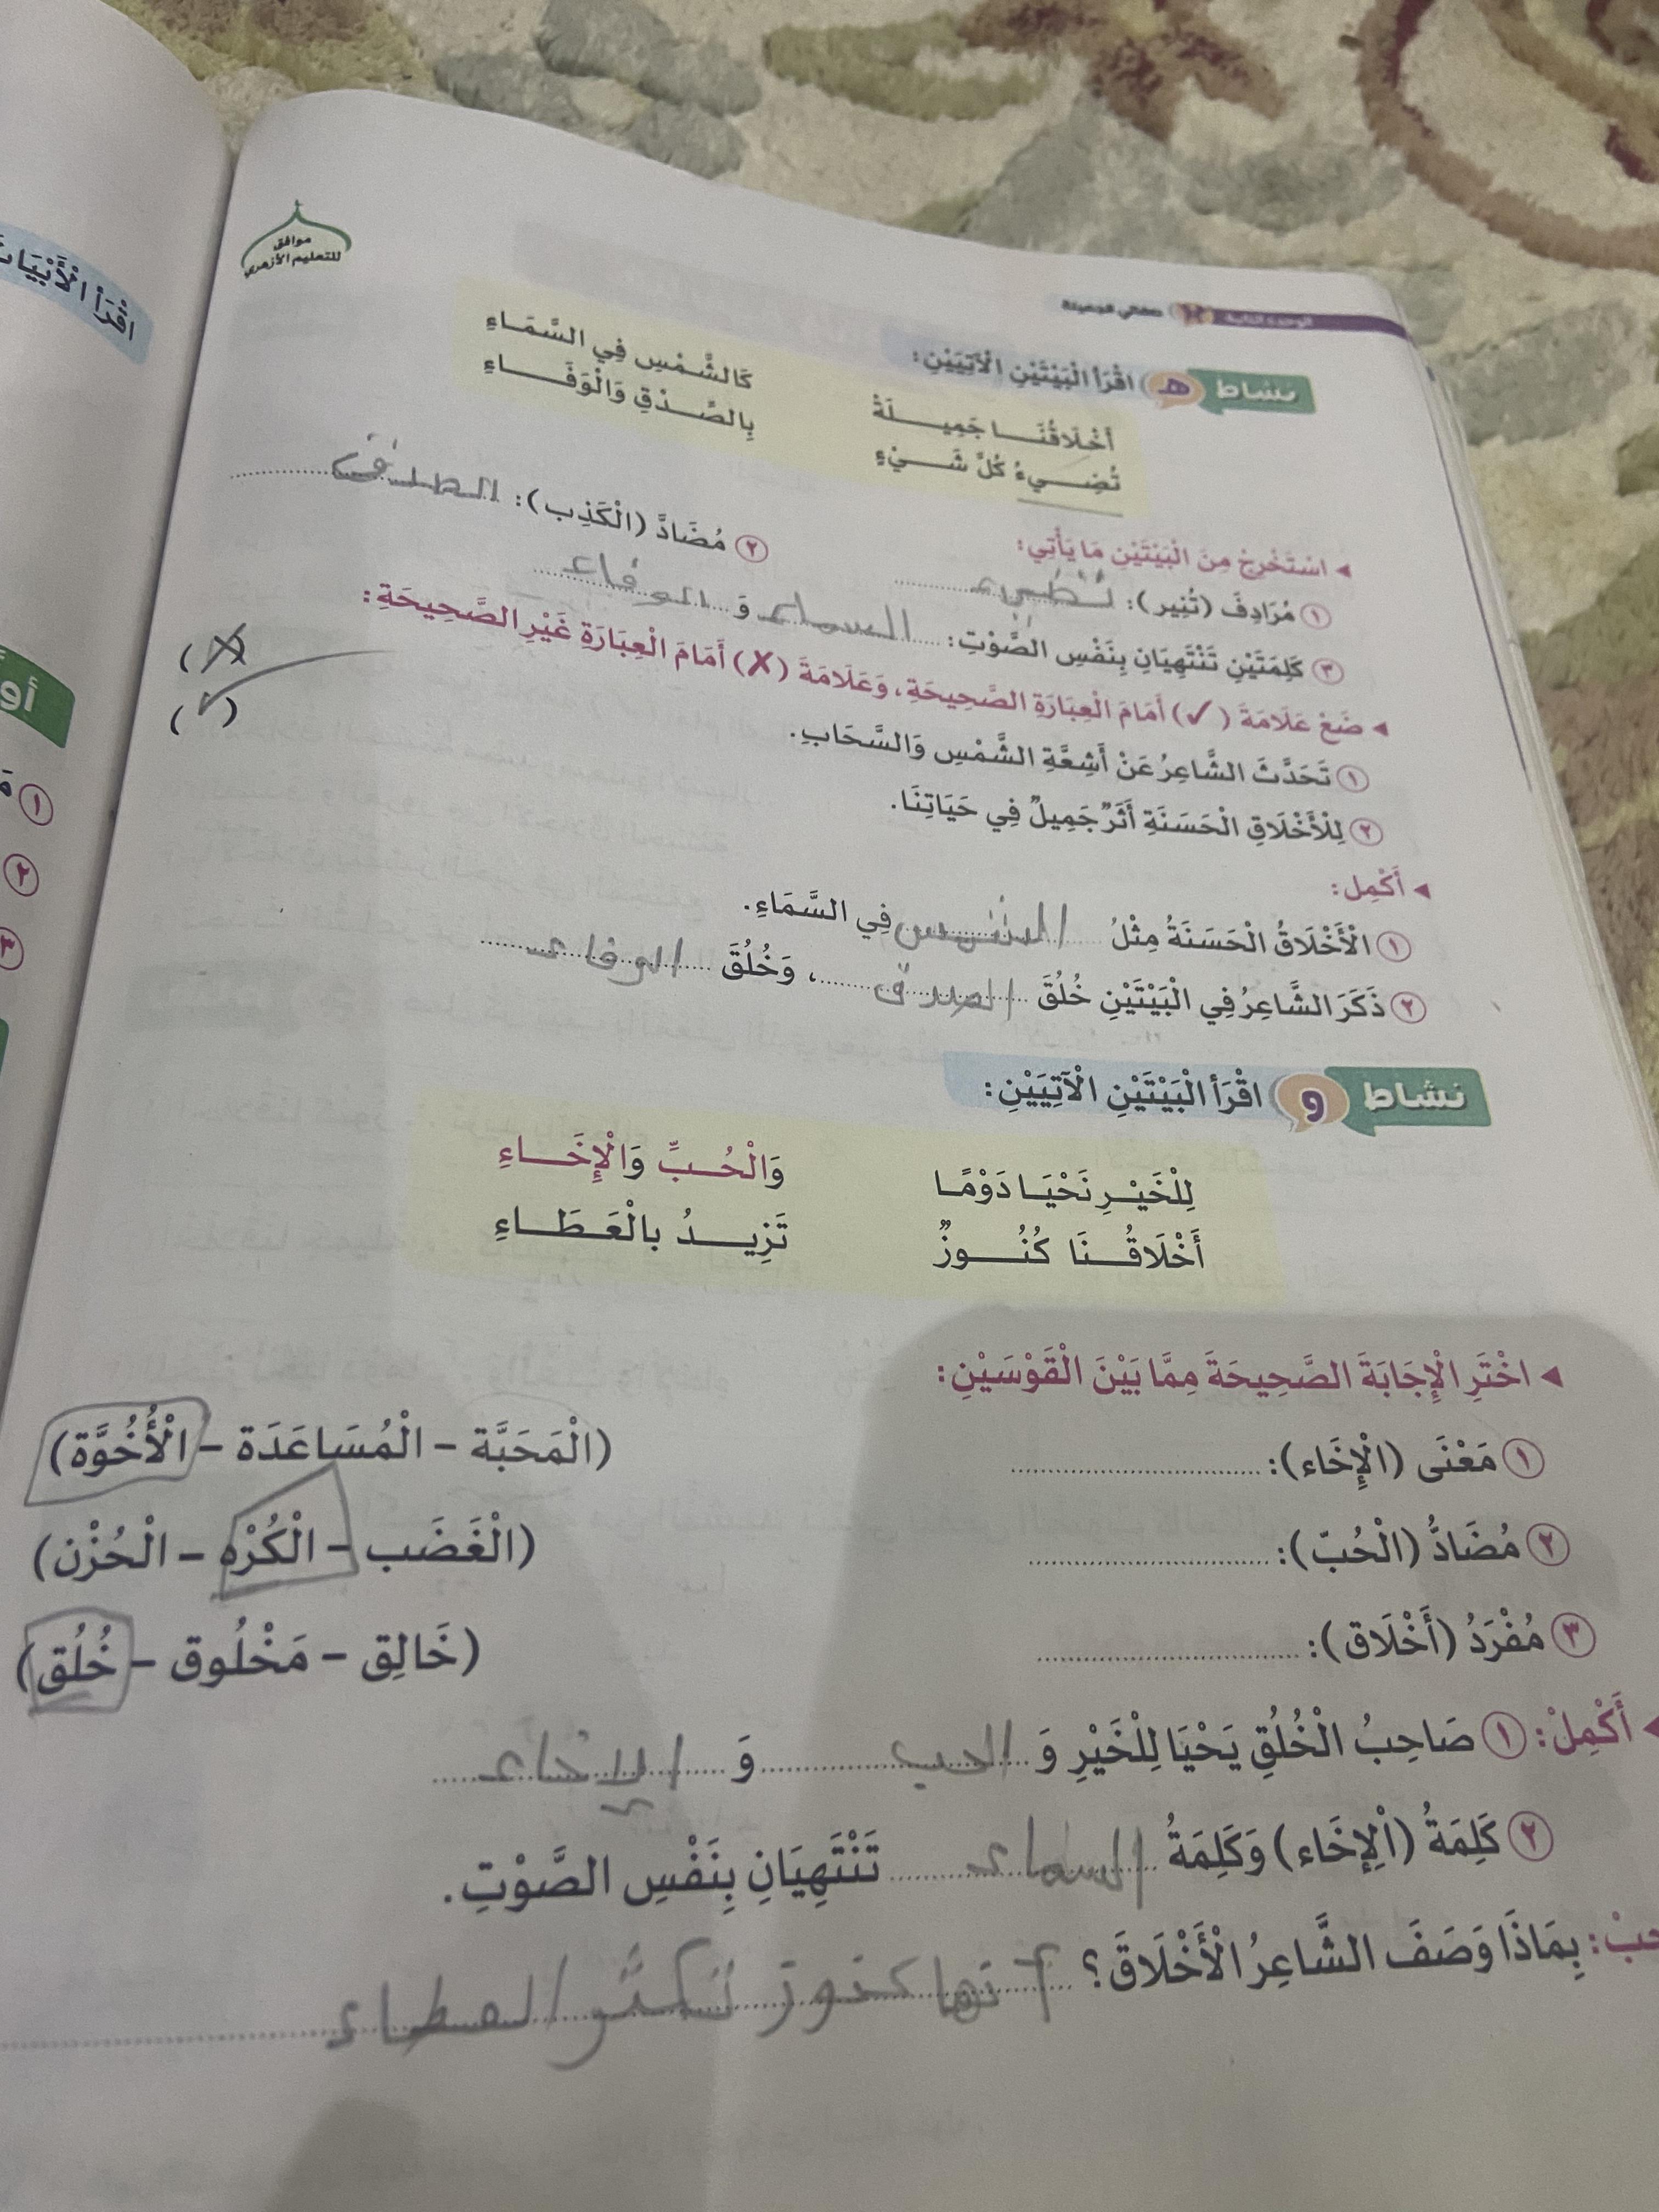 موافق
للتعليم الأزهري
الوحدة الثانية
صفاتي الجميلة
اقْرَأِ الْأَبْيَات
أو
١
٢
٣
نشاط هـ اقْرَأِ الْبَيْتَيْنِ الْآتِيَيْنِ:
أَخْلَاقُنَـــا جَمِيـــلَةٌ كَالشَّمْسِ فِي السَّمَـاءِ
تُضِــيءُ كُلَّ شَــيْءٍ بِالصِّــدْقِ وَالْوَفَــاءِ
◂ اسْتَخْرِجْ مِنَ الْبَيْتَيْنِ مَا يَأْتِي:
١ مُرَادِفَ (تُنِير): تضيء ٢ مُضَادَّ (الْكَذِب): الصدق
٣ كَلِمَتَيْنِ تَنْتَهِيَانِ بِنَفْسِ الصَّوْتِ: السماء وَ الوفاء
◂ ضَعْ عَلَامَةَ (✓) أَمَامَ الْعِبَارَةِ الصَّحِيحَةِ، وَعَلَامَةَ (✗) أَمَامَ الْعِبَارَةِ غَيْرِ الصَّحِيحَةِ:
١ تَحَدَّثَ الشَّاعِرُ عَنْ أَشِعَّةِ الشَّمْسِ وَالسَّحَابِ. (✗)
٢ لِلْأَخْلَاقِ الْحَسَنَةِ أَثَرٌ جَمِيلٌ فِي حَيَاتِنَا. (✓)
◂ أَكْمِل:
١ الْأَخْلَاقُ الْحَسَنَةُ مِثْلُ الشمس فِي السَّمَاءِ.
٢ ذَكَرَ الشَّاعِرُ فِي الْبَيْتَيْنِ خُلُقَ الصدق، وَخُلُقَ الوفاء
نشاط و اقْرَأِ الْبَيْتَيْنِ الْآتِيَيْنِ:
لِلْخَيْــرِ نَحْيَــا دَوْمًـا وَالْحُــبِّ وَالْإِخَــاءِ
أَخْلَاقُــنَا كُنُــوزٌ تَزِيــدُ بالْعَـطَـاءِ
◂ اخْتَرِ الْإِجَابَةَ الصَّحِيحَةَ مِمَّا بَيْنَ الْقَوْسَيْنِ:
١ مَعْنَى (الْإِخَاء): (الْمَحَبَّة – الْمُسَاعَدَة – الْأُخُوَّة)
٢ مُضَادُّ (الْحُبّ): (الْغَضَب – الْكُرْه – الْحُزْن)
٣ مُفْرَدُ (أَخْلَاق): (خَالِق – مَخْلُوق – خُلُق)
◂ أَكْمِلْ: ١ صَاحِبُ الْخُلُقِ يَحْيَا لِلْخَيْرِ وَ الحب وَ الإخاء
٢ كَلِمَةُ (الْإِخَاء) وَكَلِمَةُ السماء تَنْتَهِيَانِ بِنَفْسِ الصَّوْتِ.
بِمَاذَا وَصَفَ الشَّاعِرُ الْأَخْلَاقَ؟ أنها كنوز تكثر العطاء